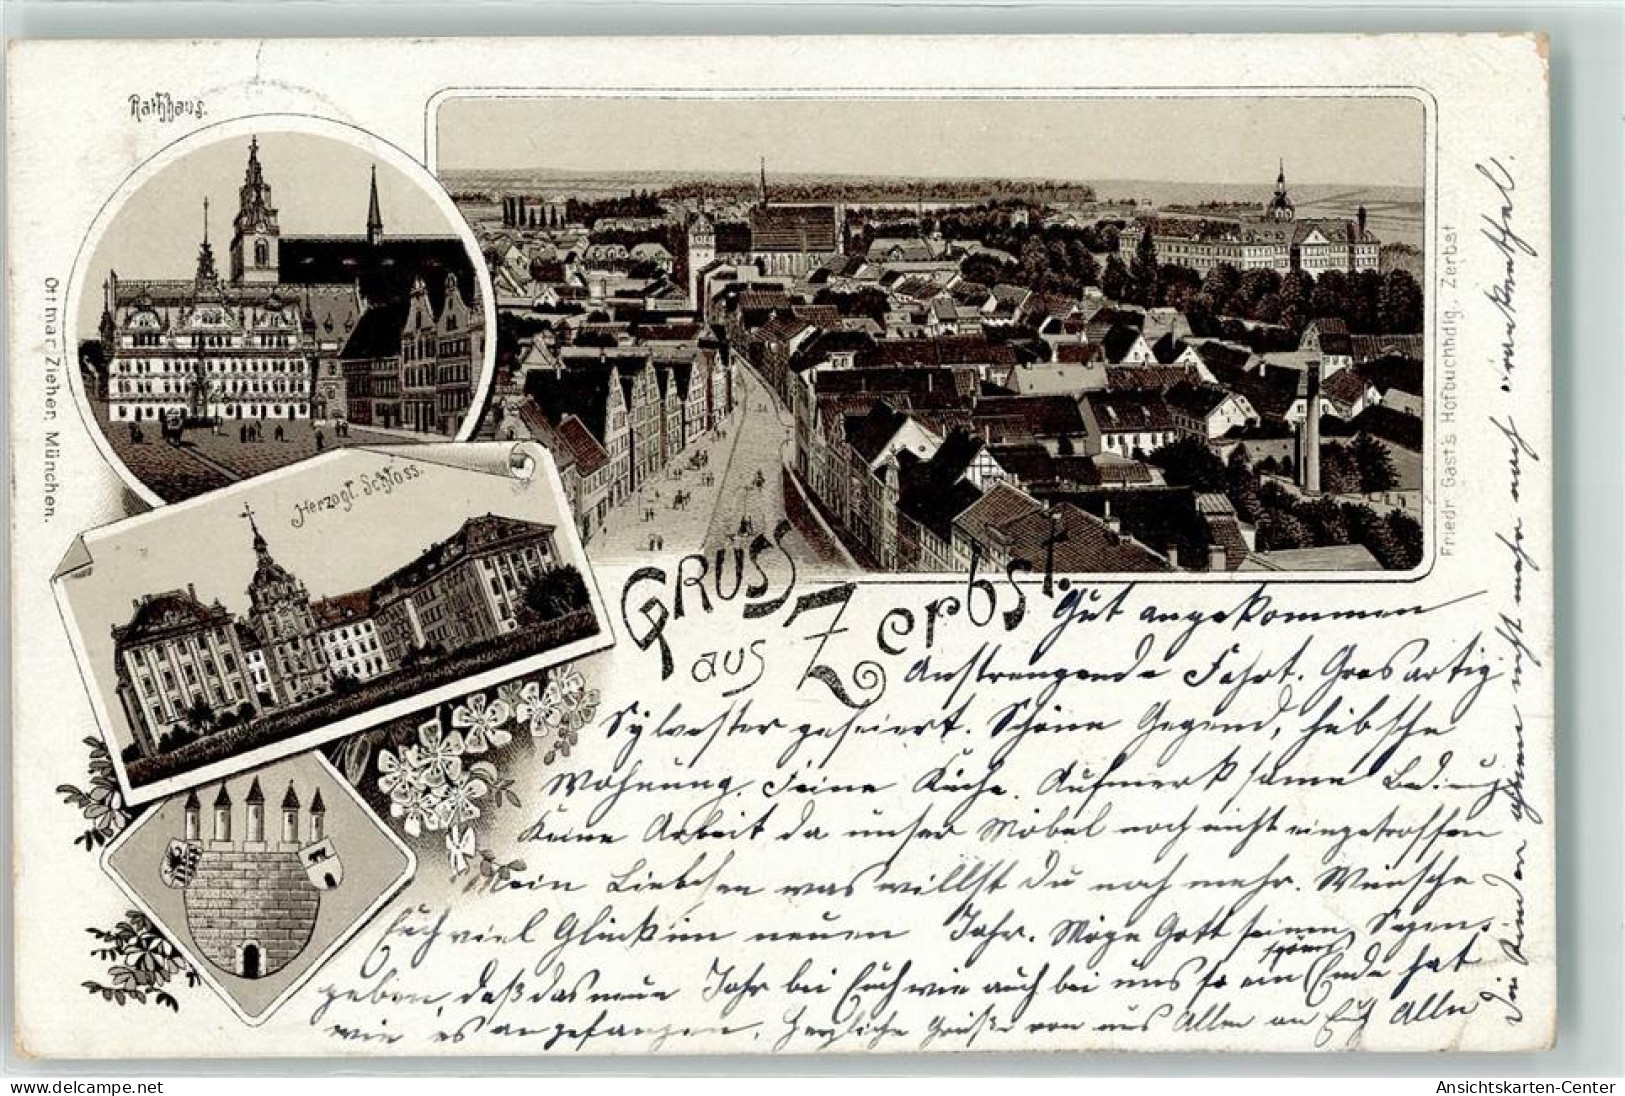 Rathhaus.
Herzogl. Schloss.
Ottmar Zieher, München.
Friedr. Gast's Hofbuchhdlg. Zerbst
Gruss
aus Zerbst.
Gut angekommen
Anstrengende Fahrt. Grosartig
Sylvester gefeiert. Schöne Gegend, hübsche
Wohnung. Feine Küche. Aufmerksame
Keine Arbeit da unser Möbel noch nicht eingetroffen
Mein Liebchen was willst Du noch mehr. Wünsche
Euch viel Glück im neuen Jahr. Möge Gott seinen Segen
geben, daß das neue Jahr bei Euch wie auch bei uns so ein schönes Ende hat
wie es angefangen. Herzliche Grüße von uns Allen an Euch Allen
Die Kinder nicht mehr nach
Ansichtskarten-Center